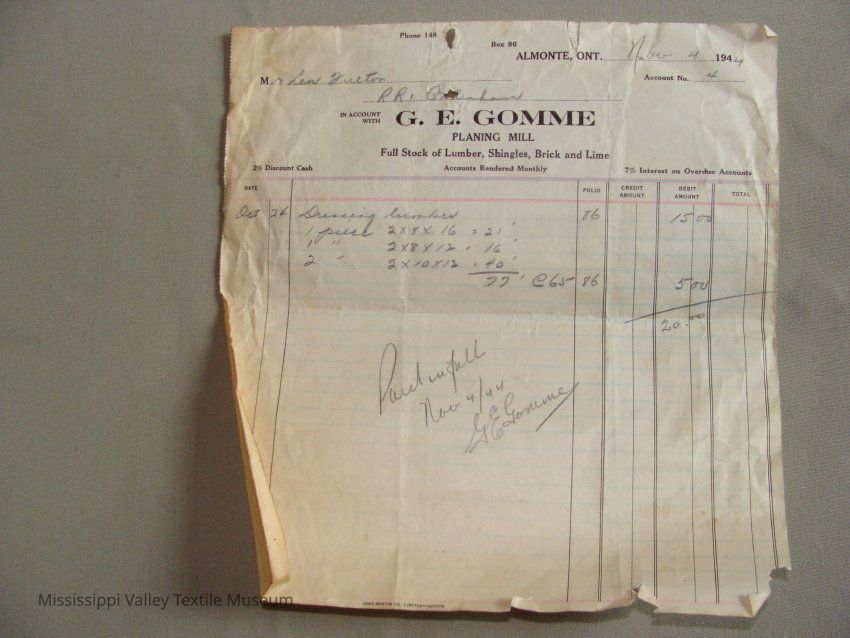 Phone 148
Box 86
ALMONTE, ONT. Nov 4 1944
Account No. 4
Mr Len Fulton
RR1
IN ACCOUNT WITH G. E. GOMME
PLANING MILL
Full Stock of Lumber, Shingles, Brick and Lime
2% Discount Cash Accounts Rendered Monthly 7% Interest on Overdue Accounts
DATE FOLIO CREDIT AMOUNT DEBIT AMOUNT TOTAL
Oct 24 Dressing lumber 86 15 00
1 piece 2x8x16 = 21'
1 " 2x8x12 = 16'
2 " 2x10x12 = 40'
77' @ 65 86 5 00
20.00
Paid in full
Nov 4/44
G E Gomme
Mississippi Valley Textile Museum